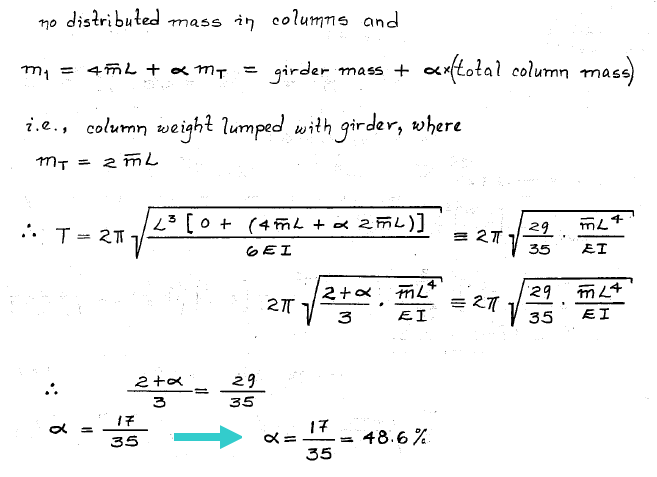 no distributed mass in columns and
m₁ = 4m̅L + α m_T = girder mass + α×(total column mass)
i.e., column weight lumped with girder, where
m_T = 2 m̅L
∴ T = 2π √(L³ [0 + (4m̅L + α 2m̅L)] / 6EI) ≡ 2π √(29/35 · m̅L⁴/EI)
2π √((2+α)/3 · m̅L⁴/EI) ≡ 2π √(29/35 · m̅L⁴/EI)
∴ (2+α)/3 = 29/35
α = 17/35 → α = 17/35 = 48.6%